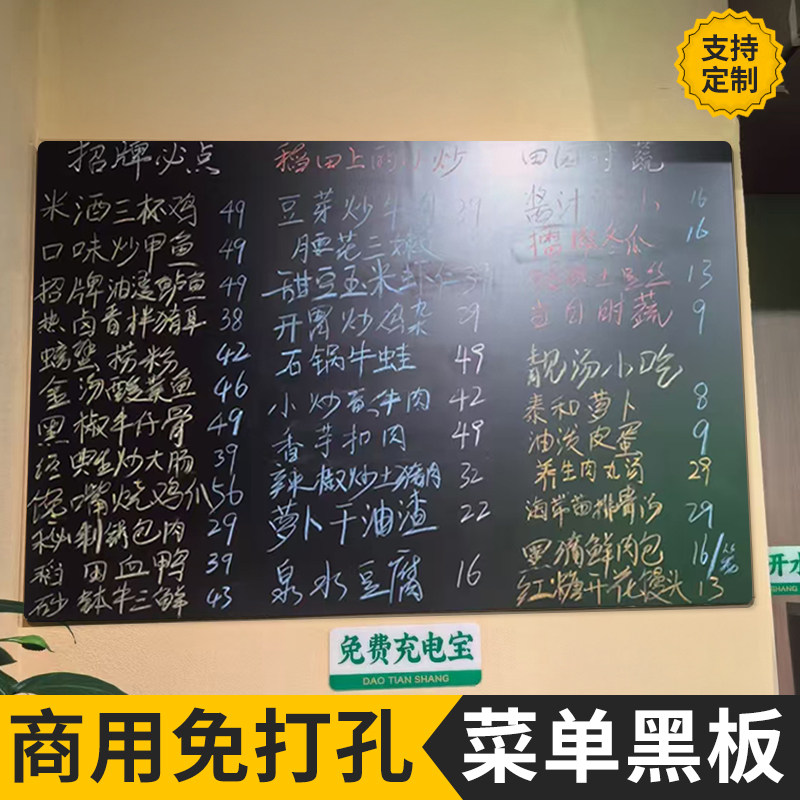 支持
定制
招牌必点
米酒三杯鸡 49
口味炒甲鱼 49
招牌油浸鲈鱼 49
热卤香拌猪耳 38
螃蟹捞粉 42
金汤酸菜鱼 46
黑椒牛仔骨 49
经典生炒大肠 39
馋嘴烧鸡爪 56
秘制锅包肉 29
稻田血鸭 39
砂钵牛三鲜 43
稻田上的小炒
豆芽炒牛肉 39
腰花三嫩
甜豆玉米虾仁 39
开胃炒鸡杂 29
石锅牛蛙 49
小炒黄牛肉 42
香芋扣肉 49
辣椒炒土猪肉 32
萝卜干油渣 22
泉水豆腐 16
田园时蔬
酱汁 16
冬瓜 16
土豆丝 13
当日时蔬 9
靓汤小吃
泰和萝卜 8
油泼皮蛋 9
养生肉丸汤 29
海茸苗排骨汤 29
黑猪鲜肉包 16/笼
红糖开花馒头 13
免费充电宝
DAO TIAN SHANG
开水
SHANG
商用免打孔
菜单黑板